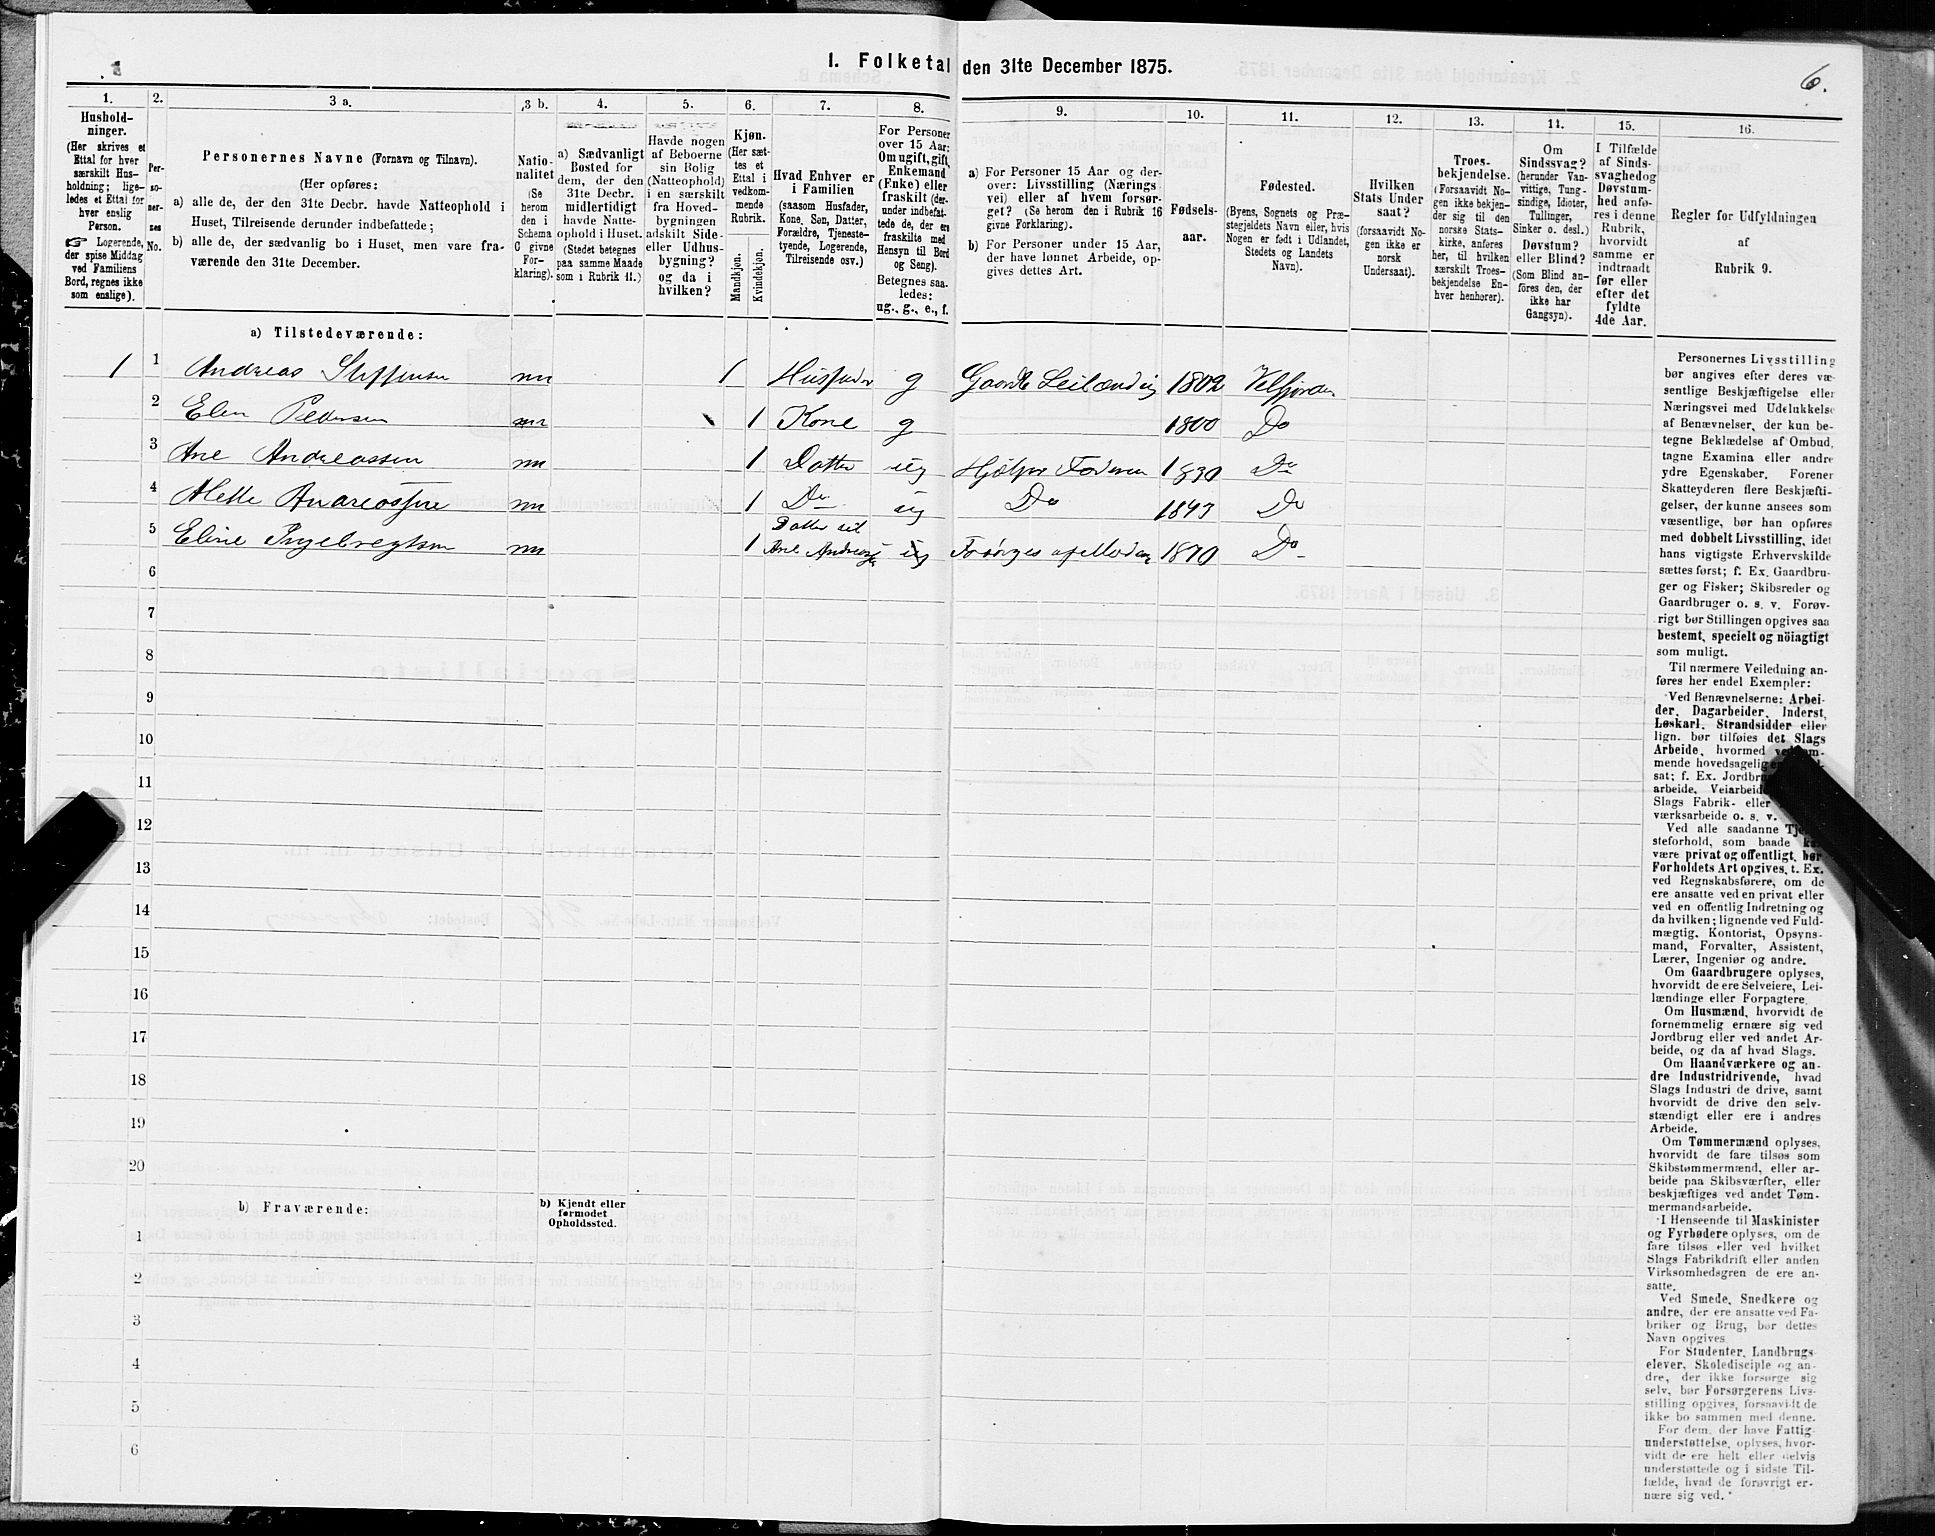 1. Folketal den 31te December 1875.
6.
1.
2.
3 a.
3 b.
4.
5.
6.
7.
8.
9.
10.
11.
12.
13.
14.
15.
16.
Hushold-
ninger.
(Her skrives et
Ettal for hver
særskilt Hus-
holdning; lige-
ledes et Ettal for
hver enslig
Person.
☞ Logerende,
der spise Middag
ved Familiens
Bord, regnes ikke
som enslige).
Per-
so-
ner-
nes
No.
Personernes Navne (Fornavn og Tilnavn).
(Her opføres:
a) alle de, der den 31te Decbr. havde Natteophold i
Huset, Tilreisende derunder indbefattede;
b) alle de, der sædvanlig bo i Huset, men vare fra-
værende den 31te December.
Natio-
nalitet
(Se
herom
den i
Schema
C givne
For-
klaring).
a) Sædvanligt
Bosted for
dem, der den
31te Decbr.
midlertidigt
havde Natte-
ophold i Huset.
(Stedet betegnes
paa samme Maade
som i Rubrik 11.)
Havde nogen
af Beboerne
sin Bolig
(Natteophold)
i en særskilt
fra Hoved-
bygningen
adskilt Side-
eller Udhus-
bygning?
og da i
hvilken?
Kjøn.
(Her sæt-
tes et
Ettal i
vedkom-
mende
Rubrik.
Mandkjøn.
Kvindekjøn.
Hvad Enhver er
i Familien
(saasom Husfader,
Kone, Søn, Datter,
Forældre, Tjeneste-
tyende, Logerende,
Tilreisende osv.)
For Personer
over 15 Aar:
Om ugift, gift,
Enkemand
(Enke) eller
fraskilt (der-
under indbefat-
tede de, der ere
fraskilte med
Hensyn til Bord
og Seng).
Betegnes saa-
ledes:
ug., g., e., f.
a) For Personer 15 Aar og der-
over: Livsstilling (Nærings
vei) eller af hvem forsør-
get? (Se herom den i Rubrik 16
givne Forklaring).
b) For Personer under 15 Aar,
der have lønnet Arbeide, op-
gives dettes Art.
Fødsels-
aar.
Fødested.
(Byens, Sognets og Præ-
stegjeldets Navn eller, hvis
Nogen er født i Udlandet,
Stedets og Landets
Navn).
Hvilken
Stats Under
saat?
(forsaavidt No-
gen ikke er
norsk
Undersaat).
Troes-
bekjendelse.
(Forsaavidt No-
gen ikke bekjen-
der sig til den
norske Stats-
kirke, anføres
her, til hvilken
særskilt Troes-
bekjendelse En-
hver henhører).
Om
Sindssvag?
(herunder Van-
vittige, Tung-
sindige, Idioter,
Tullinger,
Sinker o. desl.)
Døvstum?
eller Blind?
(Som Blind an-
føres den, der
ikke har
Gangsyn).
I Tilfælde
af Sinds-
svaghed og
Døvstum-
hed anfø-
res i denne
Rubrik,
hvorvidt
samme er
indtraadt
før eller
efter det
fyldte
4de Aar.
Regler for Udfyldningen
af
Rubrik 9.
a) Tilstedeværende:
1 1 Andreas Steffensen nn 1 Husfader g Gaardb Leilænding 1802 Velfjorden
2 Elen Pedersen nn 1 Kone g 1800 Do
3 Ane Andreassen nn 1 Datter ug Hjælper Faderen 1830 Do
4 Mette Andreassen nn 1 Do ug Do 1843 Do
5 Eline Ingebregtsen nn 1 Datter til Ane Andreas ug Forsørges af Moderen 1870 Do
6
7
8
9
10
11
12
13
14
15
16
17
18
19
20
b) Fraværende:
b) Kjendt eller
formodet
Opholdssted.
1
2
3
4
5
6
Personernes Livsstilling
bør angives efter deres væ-
sentlige Beskjæftigelse eller
Næringsvei med Udelukkelse
af Benævnelser, der kun be-
tegne Beklædelse af Ombud,
tagne Examina eller andre
ydre Egenskaber. Forener
Skatteyderen flere Beskjæfti-
gelser, der kunne ansees som
væsentlige, bør han opføres
med dobbelt Livsstilling, idet
hans vigtigste Erhvervskilde
sættes først; f. Ex. Gaardbru-
ger og Fisker; Skibsreder og
Gaardbruger o. s. v. Forøv-
rigt bør Stillingen opgives saa
bestemt, specielt og nöiagtigt
som muligt.
Til nærmere Veiledning an-
føres her endel Exempler:
Ved Benævnelserne: Arbei-
der, Dagarbeider, Inderst,
Løskarl, Strandsidder eller
lign. bør tilføies det Slags
Arbeide, hvormed
mende hovedsagelig
sat; f. Ex.
arbeide,
Slags Fabrik- eller
værksarbeide o. s. v.
Ved alle saadanne
steforhold, som baade
være privat og offentligt, bør
Forholdets Art opgives, t. Ex.
ved Regnskabsførere, om de
ere ansatte ved en privat eller
ved en offentlig Indretning og
da hvilken; lignende ved Fuld-
mægtig, Kontorist, Opsyns-
mand, Forvalter, Assistent,
Lærer, Ingeniør og andre.
Om Gaardbrugere oplyses,
hvorvidt de ere Selveiere, Lei-
lændinge eller Forpagtere.
Om Husmænd, hvorvidt de
fornemmelig ernære sig ved
Jordbrug eller ved andet Ar-
beide, og da af hvad Slags.
Om Haandværkere og an-
dre Industridrivende, hvad
Slags Industri de drive, samt
hvorvidt de drive den selv-
stændigt eller ere i andres
Arbeide.
Om Tømmermænd oplyses,
hvorvidt de fare tilsøs som
Skibstømmermænd, eller ar-
beide paa Skibsværfter, eller
beskjæftiges ved andet Tøm-
mermandsarbeide.
I Henseende til Maskinister
og Fyrbødere oplyses, om de
fare tilsøs eller ved hvilket
Slags Fabrikdrift eller anden
Virksomhedsgren de ere an-
satte.
Ved Smede, Snedkere og
andre, der ere ansatte ved Fa-
briker og Brug, bør dettes
Navn opgives
For Studenter, Landbrugs-
elever, Skoledisciple og an-
dre, der ikke forsørge sig
selv, bør Forsørgerens Livs-
stilling opgives, forsaavidt de
ikke bo sammen med denne.
For dem, der have Fattig-
understøttelse, oplyses, hvor-
vidt de ere helt eller delvis
understøttede og i sidste Til-
fælde, hvad de forøvrigt er-
nære sig ved.